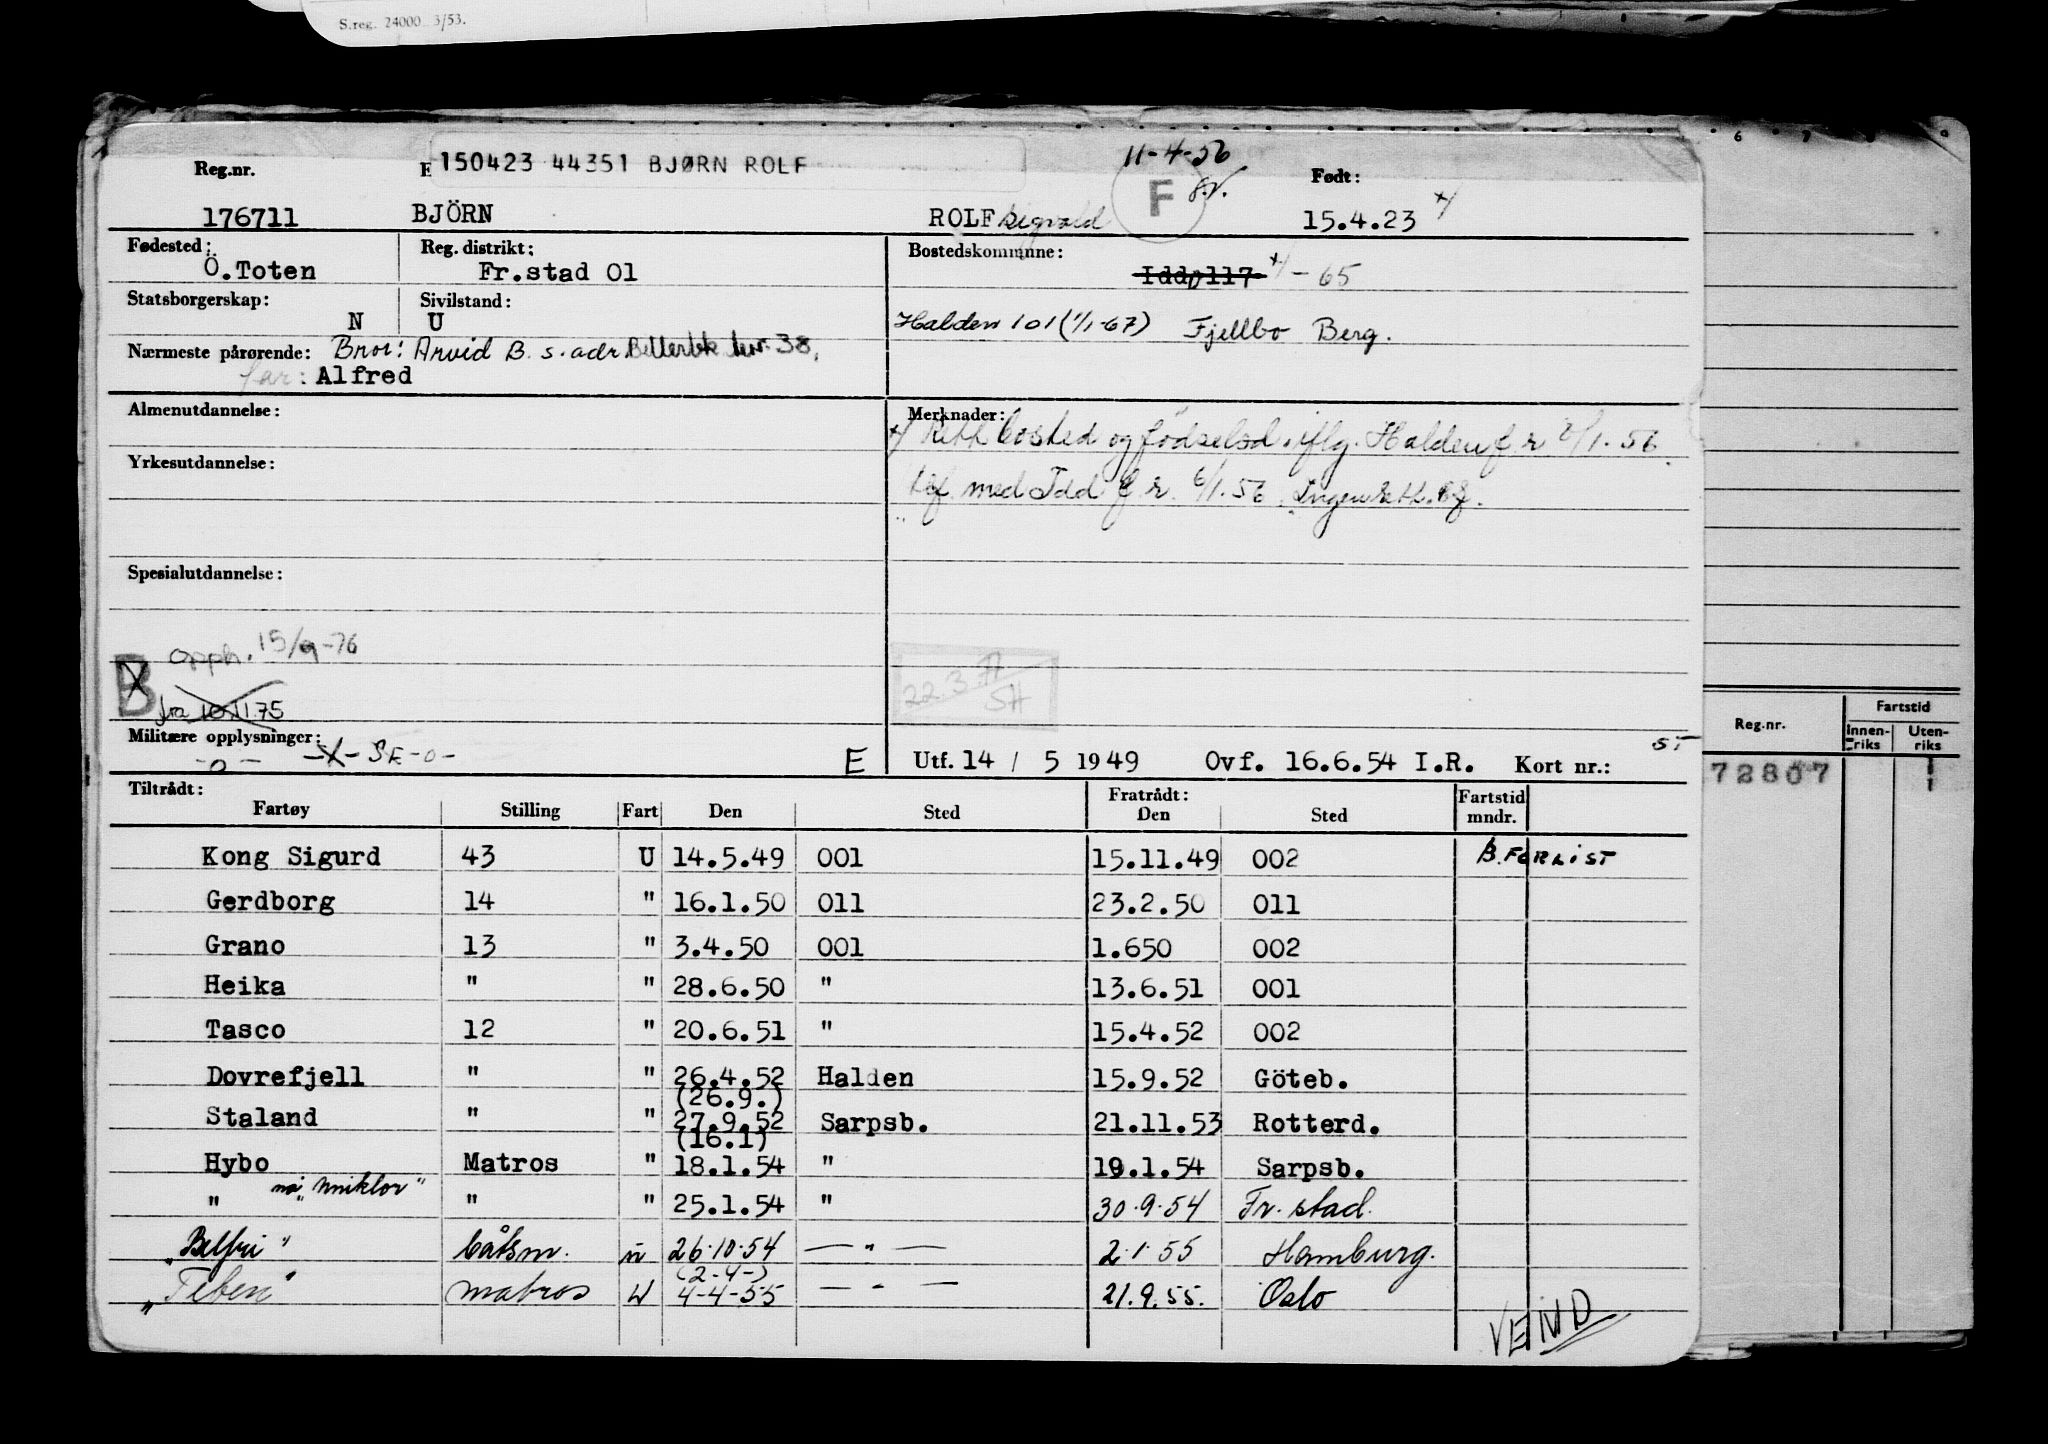 S.reg. 24000 3/53.
6 7 8 9
Reg.nr. E 150423 44351 BJØRN ROLF 11-4-56 Født:
F
176711 BJÖRN ROLF Sigvald 15.4.23 x/
Fødested: Ö.Toten Reg. distrikt: Fr.stad 01 Bostedskommune: Idd 0117 x/ - 65
Statsborgerskap: N Sivilstand: U
Halden 101 (1/1-67) Fjellbo Berg.
Nærmeste pårørende: Bror: Arvid B. s. adr 38,
far: Alfred
Almenutdannelse: Merknader:
x/ Rett bosted og fødselsd. iflg. Halden f.r. 2/1.56
Yrkesutdannelse:
tlf. med Idd f.r. 6/1.56. Ingen
Spesialutdannelse:
opph. 15/9-76
B
fra 10.11.75
22.3.77
SH
Militære opplysninger: -X- SE-0-
-0-
E Utf. 14 / 5 1949 Ovf. 16.6.54 I.R. Kort nr.: ST
Reg.nr. Fartstid
Innen-riks Uten-riks
72807
Tiltrådt: Fratrådt:
Fartøy Stilling Fart Den Sted Den Sted Fartstid mndr.
Kong Sigurd 43 U 14.5.49 001 15.11.49 002 B. FORLIST
Gerdborg 14 " 16.1.50 011 23.2.50 011
Grano 13 " 3.4.50 001 1.650 002
Heika " " 28.6.50 " 13.6.51 001
Tasco 12 " 20.6.51 " 15.4.52 002
Dovrefjell " " 26.4.52 Halden 15.9.52 Göteb.
(26.9.)
Staland " " 27.9.52 Sarpsb. 21.11.53 Rotterd.
(16.1)
Hybo Matros " 18.1.54 " 19.1.54 Sarpsb.
" nå " " 25.1.54 " 30.9.54 Fr. stad.
"Belfri" båtsm. u 26.10.54 —"— 2.1.55 Hamburg.
(2-4-)
"Teben" matros U 4-4-55 —"— 21.9.55. Oslo
VEND